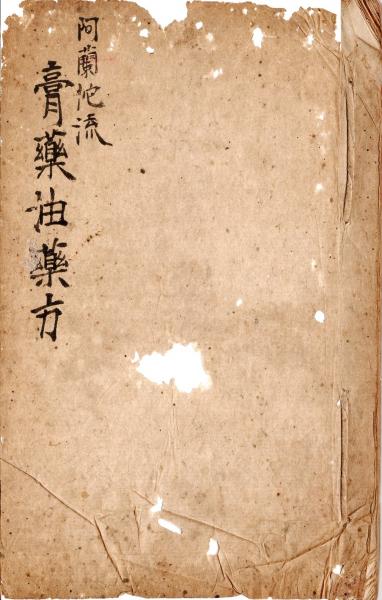 阿蘭陀流
膏藥油藥方